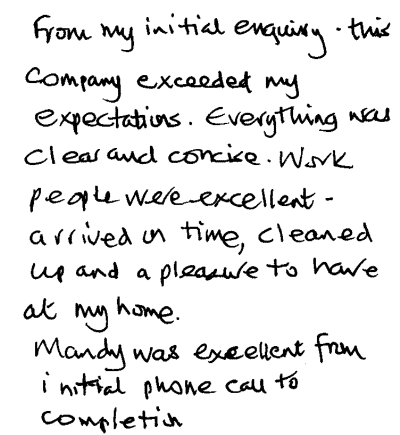 From my initial enquiry - this
Company exceeded my
expectations. Everything was
clear and concise. Work
people were excellent -
arrived on time, cleaned
up and a pleasure to have
at my home.
Mandy was excellent from
initial phone call to
completion